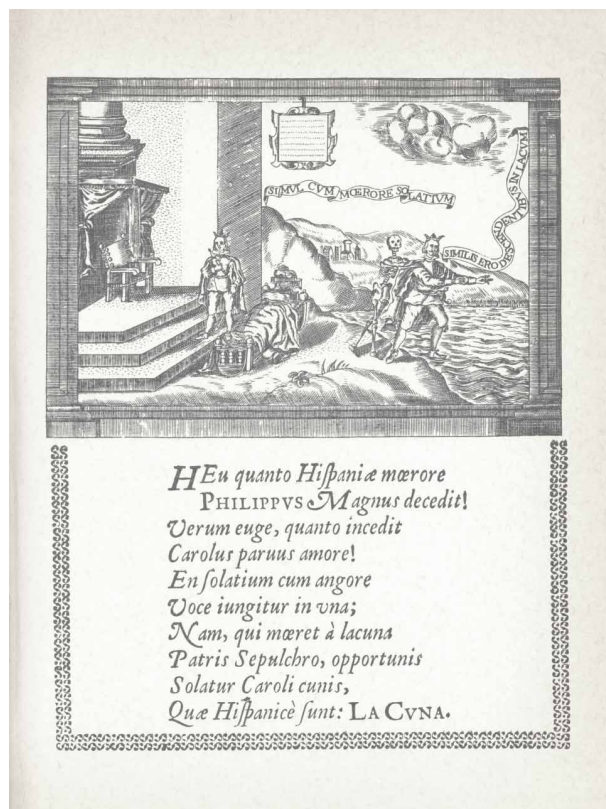 SIMVL CVM MŒRORE SOLATIVM
SIMILIS ERO DESCENDENTIBVS IN LACVM
HEu quanto Hiſpaniæ mœrore
PHILIPPVS Magnus decedit!
Verum euge, quanto incedit
Carolus paruus amore!
En ſolatium cum angore
Voce iungitur in vna;
Nam, qui mœret à lacuna
Patris Sepulchro, opportunis
Solatur Caroli cunis,
Quæ Hiſpanicè ſunt: LA CVNA.